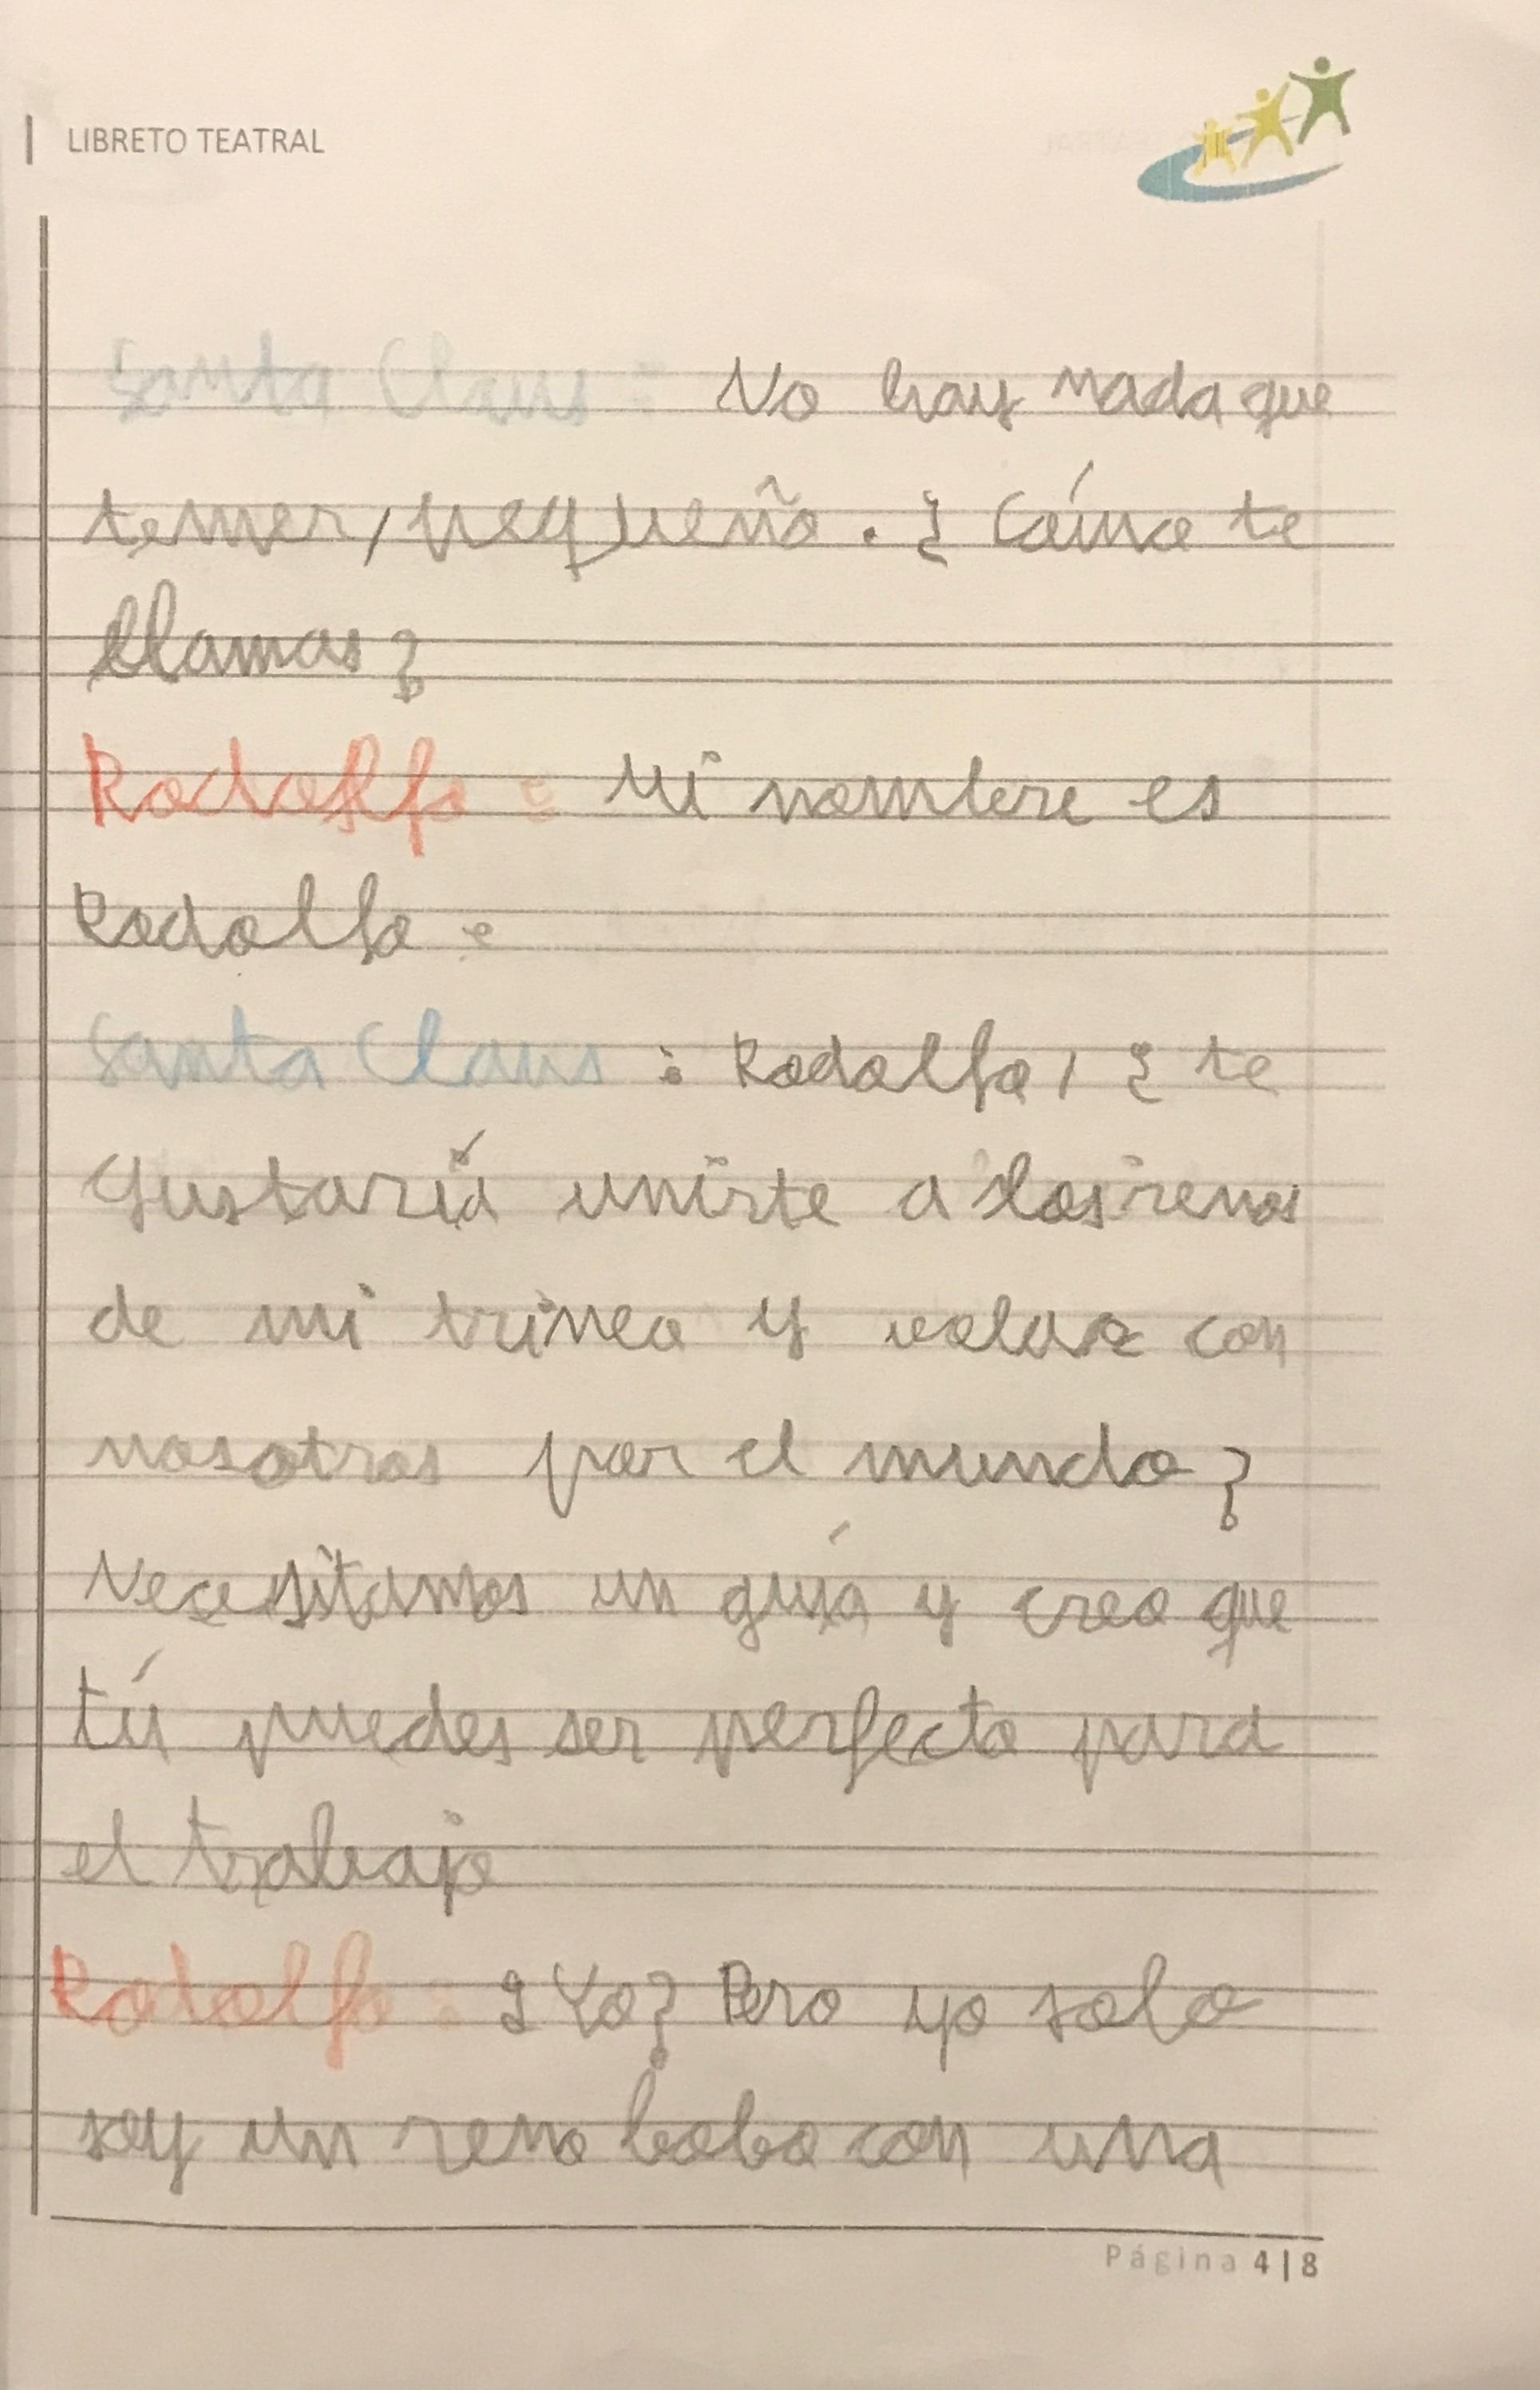 LIBRETO TEATRAL
Santa Claus: No hay nada que
temer, pequeño. ¿Cómo te
llamas?
Rodolfo: Mi nombre es
Rodolfo.
Santa Claus: Rodolfo, ¿te
gustaría unirte a los renos
de mi trineo y volar con
nosotros por el mundo?
Necesitamos un guía y creo que
tú puedes ser perfecto para
el trabajo
Rodolfo: ¿Yo? Pero yo solo
soy un reno bobo con una
Página 4|8